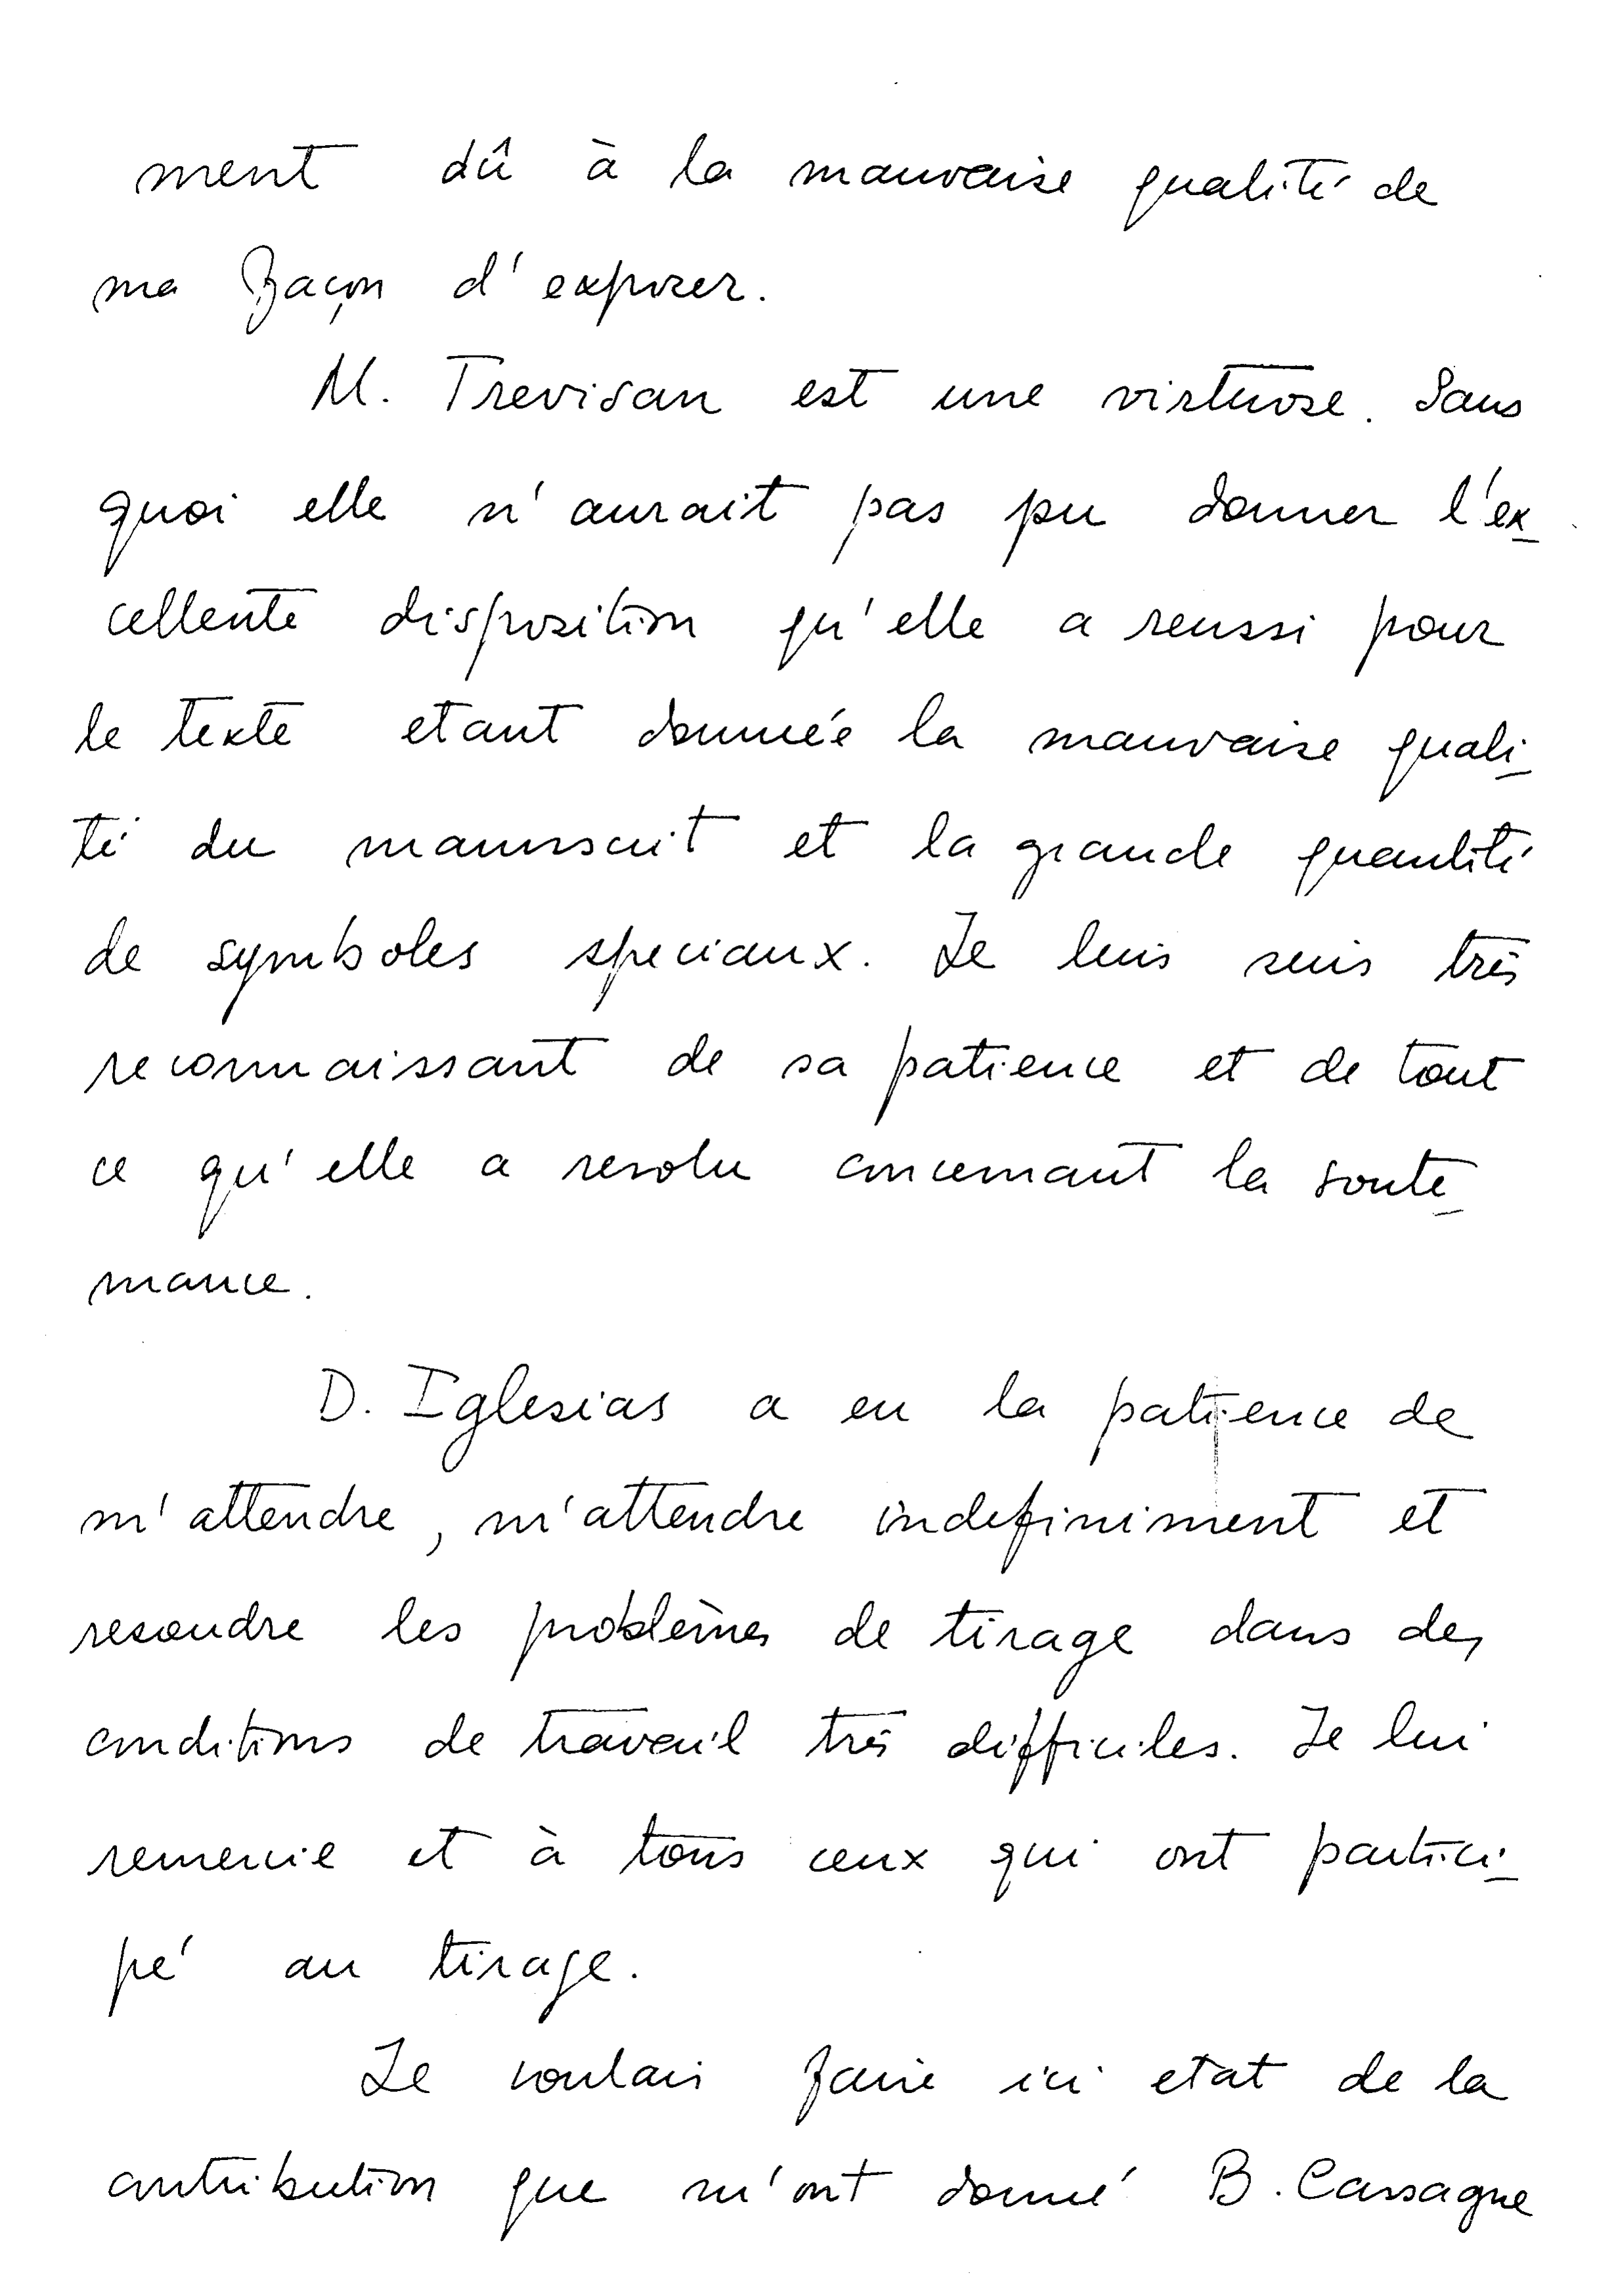 ment dû à la mauvaise qualité de
ma façon d'exposer.
M. Trevisan est une virtuose. Sans
quoi elle n'aurait pas pu donner l'ex-
cellente disposition qu'elle a reussi pour
le texte etant donnée la mauvaise quali-
té du manuscrit et la grande quantité
de symboles speciaux. Je luis suis très
reconnaissant de sa patience et de tout
ce qu'elle a resolu concernant la soute-
nance.
D. Iglesias a eu la patience de
m'attendre, m'attendre indefiniment et
resoudre les problèmes de tirage dans des
conditions de travail très difficiles. Je lui
remercie et à tous ceux qui ont partici-
pé au tirage.
Je voulais faire ici etat de la
contribution que m'ont donné B. Cassagne